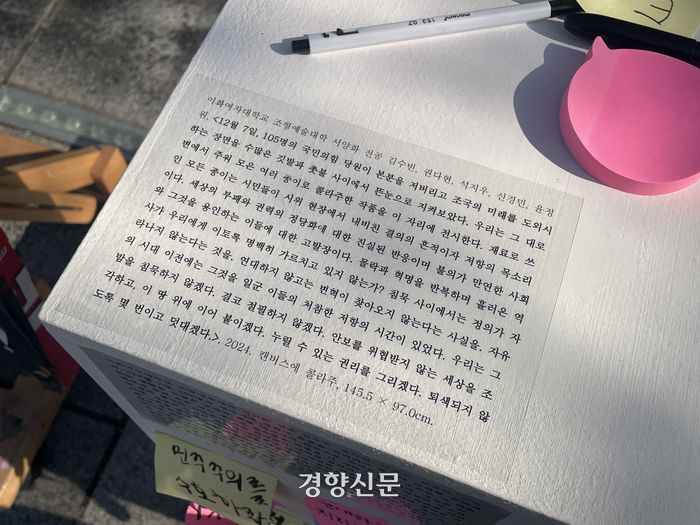 monami 153 0.7
이화여자대학교 조형예술대학 서양화 전공 김수빈, 권다현, 석지우, 신경민, 윤정
원, <12월 7일, 105명의 국민의힘 당원이 본분을 저버리고 조국의 미래를 도외시
하는 장면을 수많은 깃발과 촛불 사이에서 뜬눈으로 지켜보았다. 우리는 그 대로
변에서 주워 모은 여러 종이로 콜라주한 작품을 이 자리에 전시한다. 재료로 쓰
인 모든 종이는 시민들이 시위 현장에서 내비친 결의의 흔적이자 저항의 목소리
이다. 세상의 부패와 권력의 정당화에 대한 진실된 반응이며 불의가 만연한 사회
와 그것을 용인하는 이들에 대한 고발장이다. 몰락과 혁명을 반복하며 흘러온 역
사가 우리에게 이토록 명백히 가르치고 있지 않는가? 침묵 사이에서는 정의가 자
라나지 않는다는 것을. 연대하지 않고는 변혁이 찾아오지 않는다는 사실을. 자유
의 시대 이전에는 그것을 일군 이들의 처참한 저항의 시간이 있었다. 우리는 그
밤을 침묵하지 않겠다. 결코 침필하지 않겠다. 안보를 위협받지 않는 세상을 조
각하고, 이 땅 위에 이어 붙이겠다. 누릴 수 있는 권리를 그리겠다. 퇴색되지 않
도록 몇 번이고 덧대겠다.>, 2024, 캔버스에 콜라주, 145.5 × 97.0cm.
민주주의
경향신문